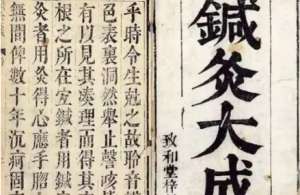 鍼灸大成
致和堂梓
乎時令生剋之故聆音
色表裏洞然舉止謦咳
有以見其凑理而得其
根之所在宜鍼者用鍼
灸者用灸得心應手
無間俾數十年沉痾固